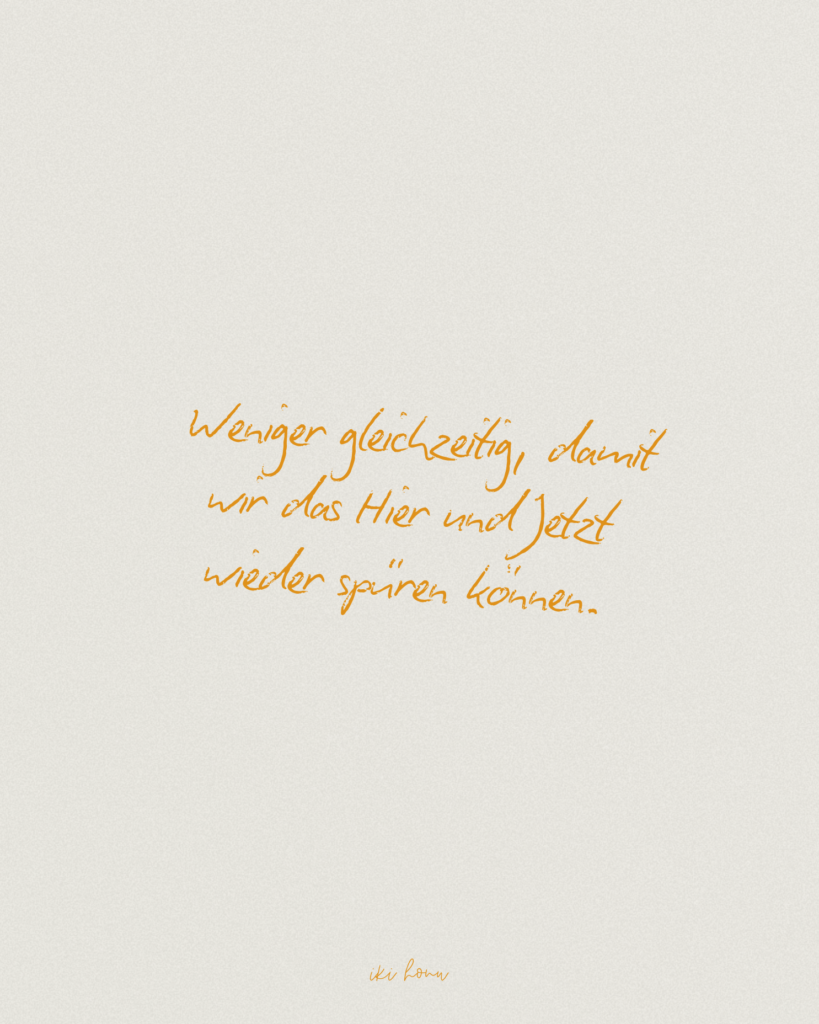 Weniger gleichzeitig, damit
wir das Hier und Jetzt
wieder spüren können.
iki honu